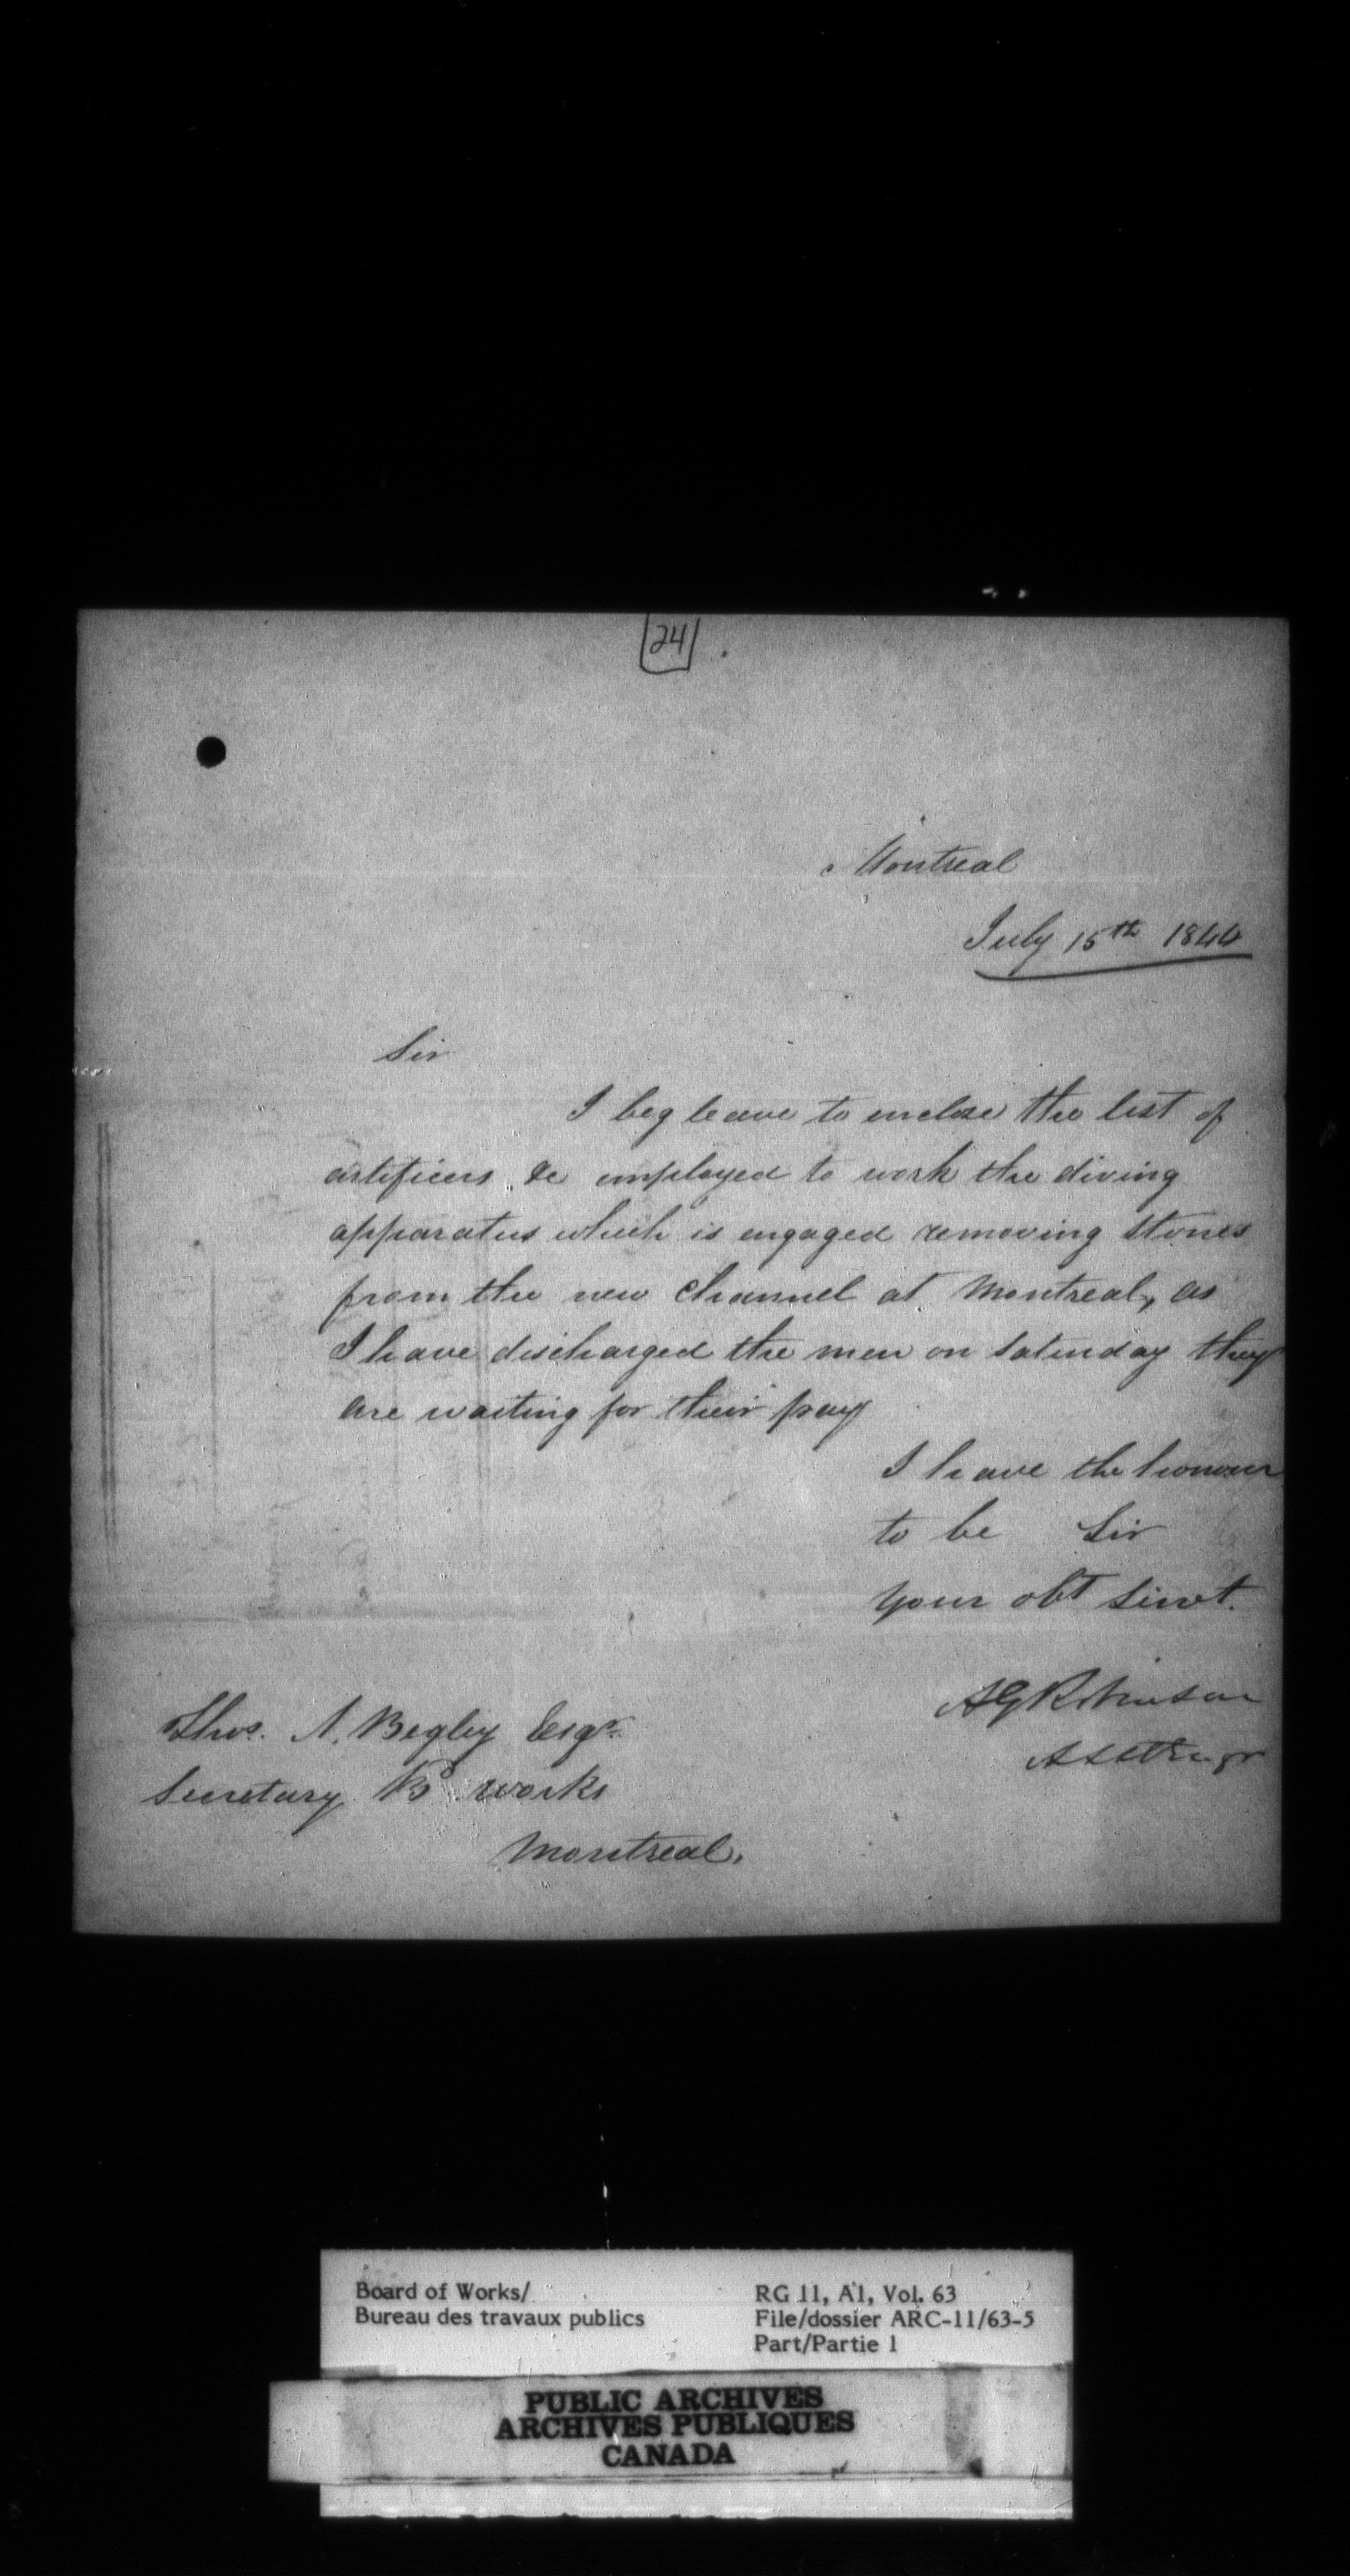 24
Montreal
July 15th 1844
Sir
I beg leave to enclose the list of
artificers &c employed to work the diving
apparatus which is engaged removing stones
from the new channel at Montreal, as
I have discharged the men on Saturday they
are waiting for their pay
I have the honour
to be Sir
your obt Servt.
AGRobinson
Thos. A. Begley Esqr.
Secretary B works
Montreal.
Board of Works/
Bureau des travaux publics
RG 11, A1, Vol. 63
File/dossier ARC-11/63-5
Part/Partie 1
PUBLIC ARCHIVES
ARCHIVES PUBLIQUES
CANADA